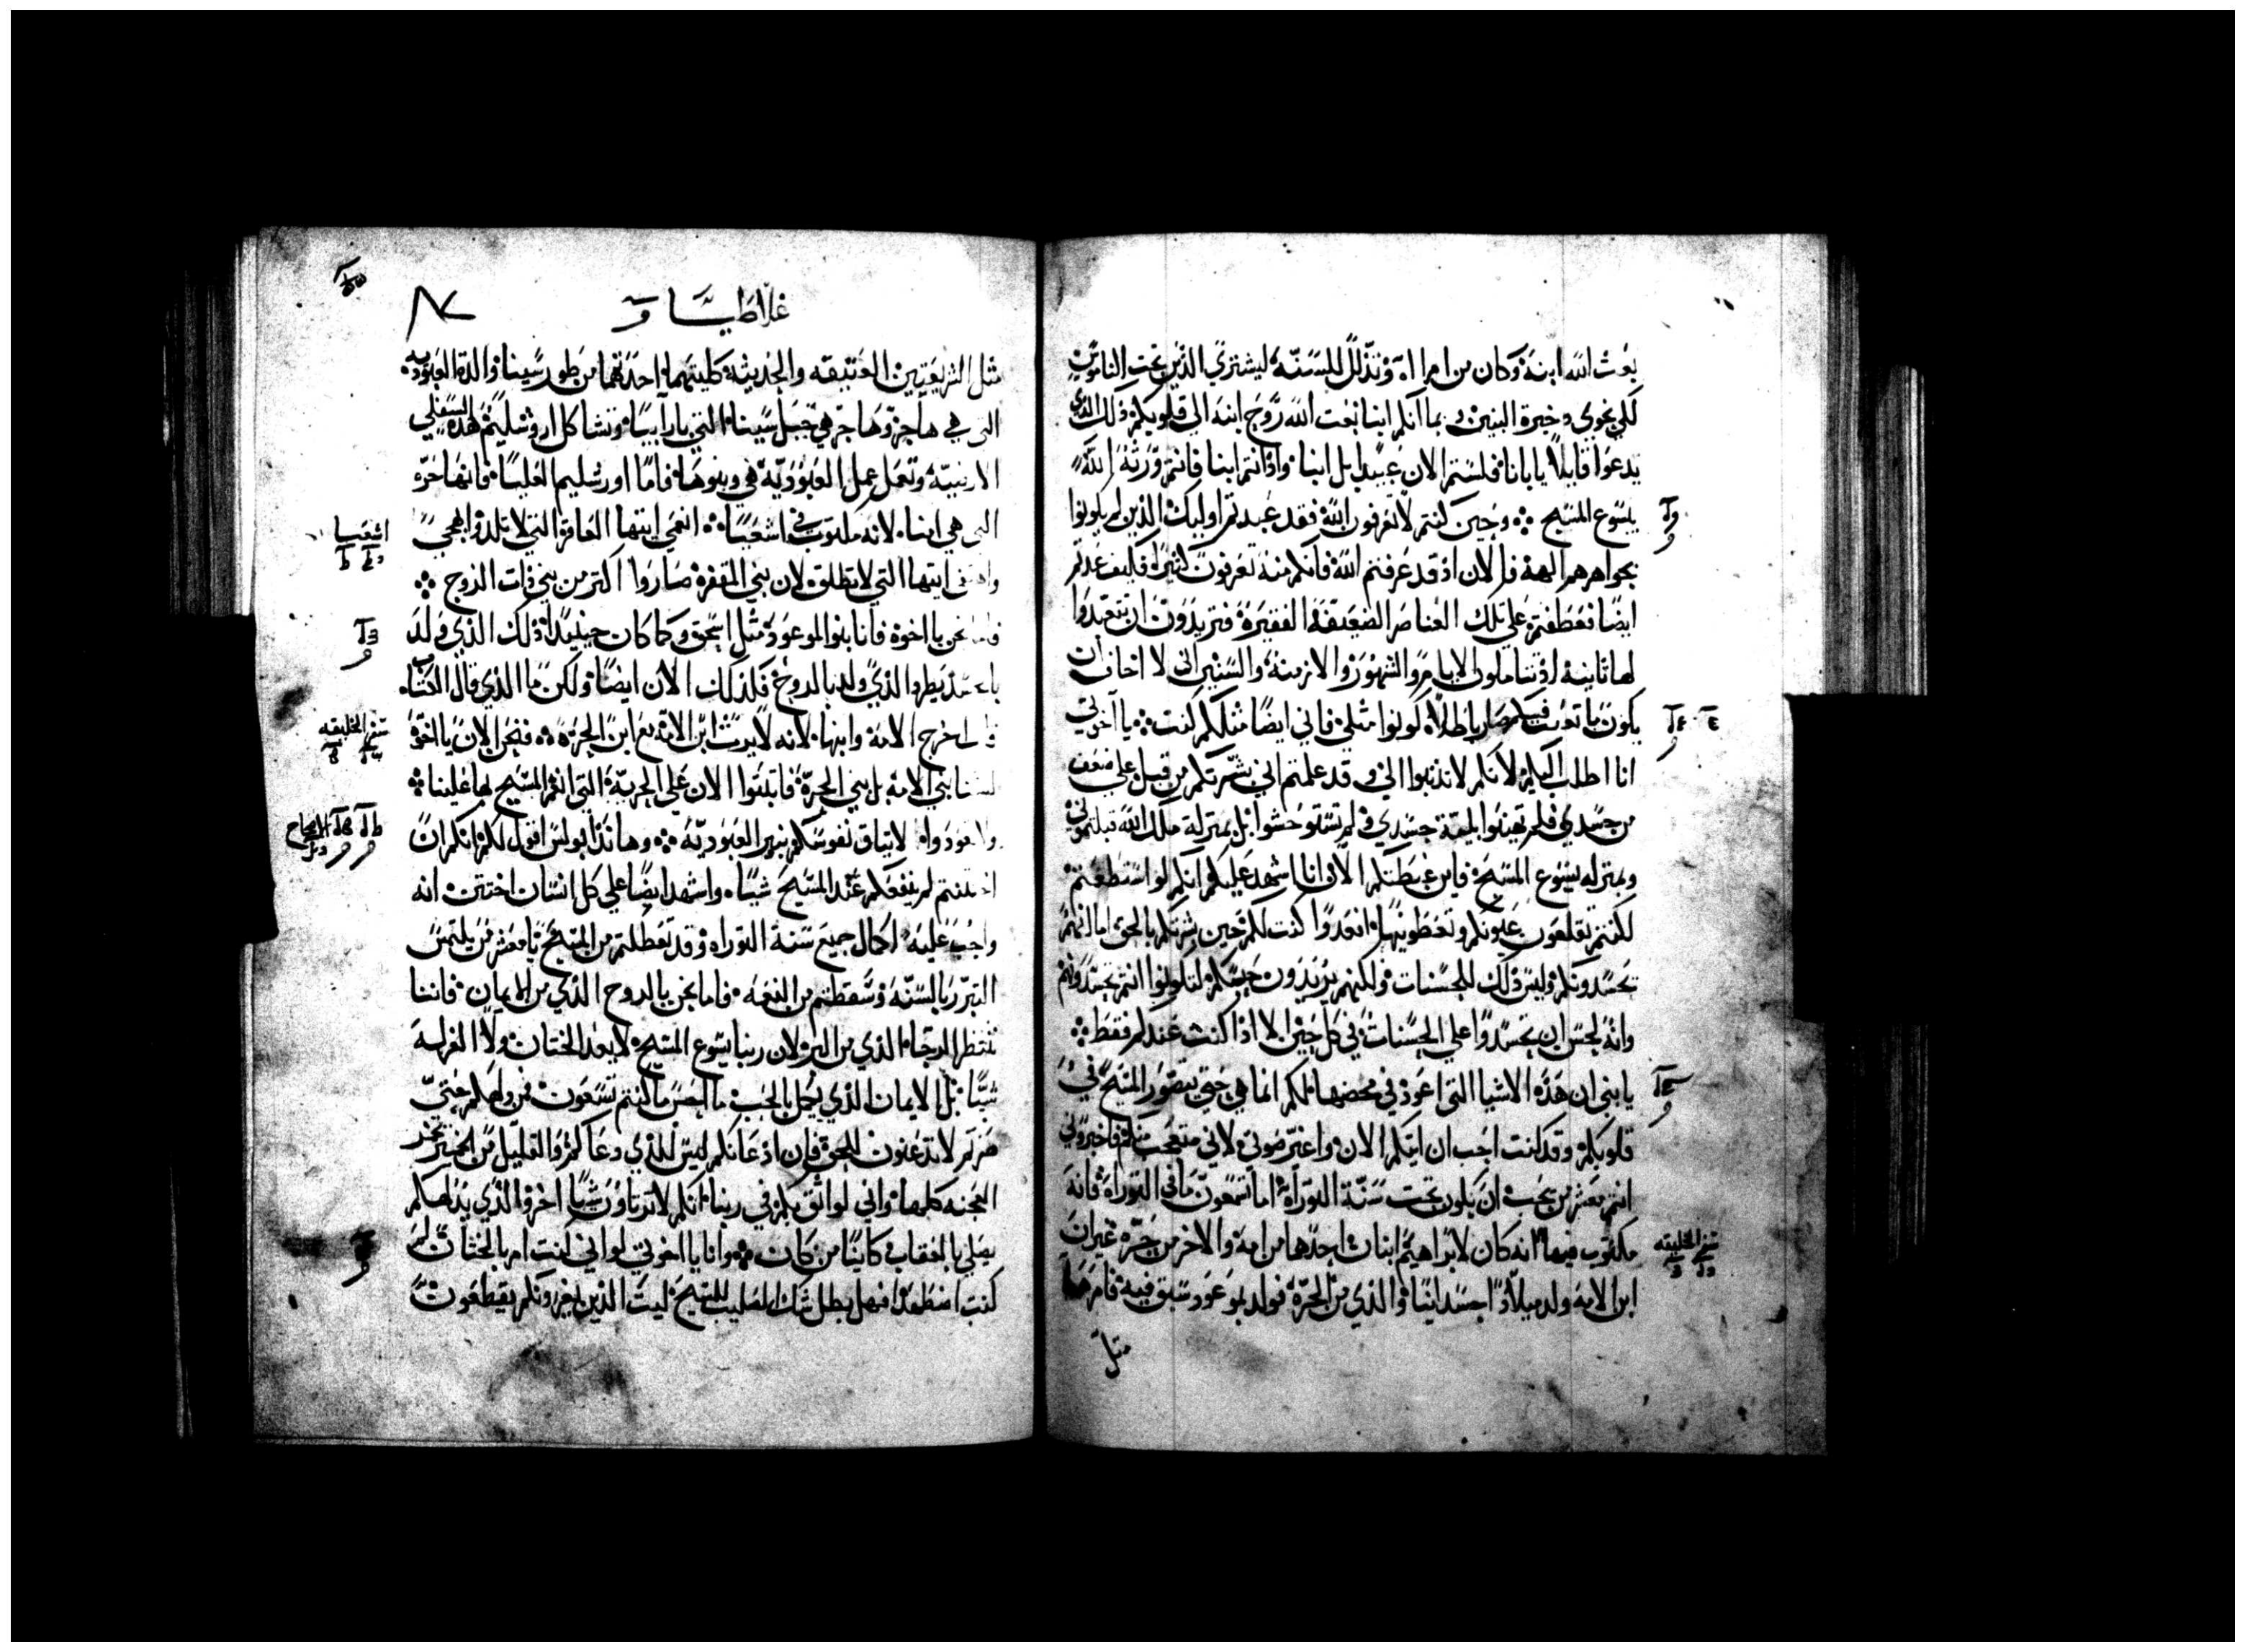 بعث الله ابنه وكان من امراه وتذلل للسنه ليشتري الذين تحت الناموس
لكي نحوي دخيرة البنين وبما انكم ابنا بعث الله روح ابنه الى قلوبكم ذلك الذي
يدعوا قايلا يا ابانا فلستم الان عبيدا بل ابنا واذ انتم ابنا فانتم ورثة الله
يسوع المسيح وحين كنتم لا تعرفون الله فقد عبدتم اوليك الذين لم يكونوا
بجواهرهم الهة فالان اذ قد عرفتم الله فانكم منه تعرفون كثيرا فكيف عدتم
ايضا فعطفتم على تلك العناصر الضعيفة الفقيرة فتريدون ان تتعبدوا
لها ثانية اذ تتاملون الايام والشهور والازمنه والسنين اني لا اخاف ان
يكون ما تعبت فيكم صار باطلا كونوا مثلي فاني ايضا مثلكم كنت يا اخوتي
انا اطلب اليكم لانكم لا تذنبوا الي وقد علمتم اني بشرتكم من قبل على ضعف
من جسدي فلم تهينوا بلية جسدي ولم تستوحشوا بل بمنزلة ملك الله قبلتموني
وبمنزلة يسوع المسيح فاين غبطتكم الان انا اشهد عليكم انكم لو استطعتم
لكنتم تقلعون عيونكم وتعطونيها افعدوا كنت لكم حين بشرتكم بالحق اما انهم
تحسدونكم وليس ذلك للحسنات ولكنهم يريدون حبسكم لتكونوا انتم تحسدونهم
وانه لحسن ان تحسدوا على الحسنات في كل حين لا اذا كنت عندكم فقط
يا بني ان هذه الاشيا التي اعود في محضها لكم انما هي حتى يتصور المسيح في
قلوبكم وقد كنت احب ان اتيكم الان واغير صوتي لاني متعجب منكم فاخبروني
انتم معشر من يحب ان يكون تحت سنة التوراه اما تسمعون ما في التوراه فانه
مكتوب فيها انه كان لابراهيم ابنان احدهما من امة والاخر من حرة غير ان
ابن الامة ولد ميلادا جسدانيا والذي من الحرة فولد بموعود سبق فيه فامرهما
مثل
سفر الخليقه
غلاطيسا
مثل الشريعتين العتيقه والحديثه كلتيهما احداهما من طور سينا والدة العبوديه
التي هي هاجر وهاجر هي جبل سينا التي بارابيا وتشاكل اورشليم هذه السفلي
الارضيه وتعمل عمل العبوديه هي وبنوها فاما اورشليم العليا فانها حره
التي هي امنا لانه مكتوب في اشعيا انعمي ايتها العاقر التي لا تلد وابهجي
واهتفي ايتها التي لا تطلق لان بني المقفرة صاروا اكثر من بني ذات الزوج
فاما نحن يا اخوة فانا بنو الموعود مثل اسحق وكما كان حينيذ اذ ذلك الذي ولد
بالجسد يطرد الذي ولد بالروح فكذلك الان ايضا ولكن ما الذي قال الكتاب
قال اخرج الامة وابنها لانه لا يرث ابن الامة مع ابن الحرة فنحن الان يا اخوة
لسنا بني الامة بل بني الحرة فاثبتوا الان على الحرية التي انعم المسيح بها علينا
ولا تعودوا لاتياق نفوسكم بنير العبوديه وها نذا بولس اقول لكم انكم ان
اختتنتم لم ينفعكم عند المسيح شيا واشهد ايضا على كل انسان اختتن انه
واجب عليه اكمال جميع سنة التوراه وقد تعطلتم من المسيح يا معشر من يلتمس
التبرر بالسنه وسقطتم من النعمه فاما نحن بالروح الذي من الايمان فاننا
ننتظر الرجا الذي من البر لان ربنا يسوع المسيح لا يعد الختان ولا الغرله
شيا بل الايمان الذي يكمل بالحب ما احسن ما كنتم تسعون فمن ولهكم حتى
صرتم لا تدعنون للحق فان اذعانكم ليس للذي دعاكم والقليل من الخمير يخمر
العجنه كلها واني لواثق بكم في ربنا انكم لا ترتاون شيا اخر والذي يدلهكم
يصلي بالعقاب كاينا من كان وانا يا اخوتي لو اني كنت امر بالختان لم
كنت اضطهد افهل بطل شك الصليب للمسيح ليت الذين يغرونكم يقطعون
اشعيا
سفر الخليقه
الاصحاح